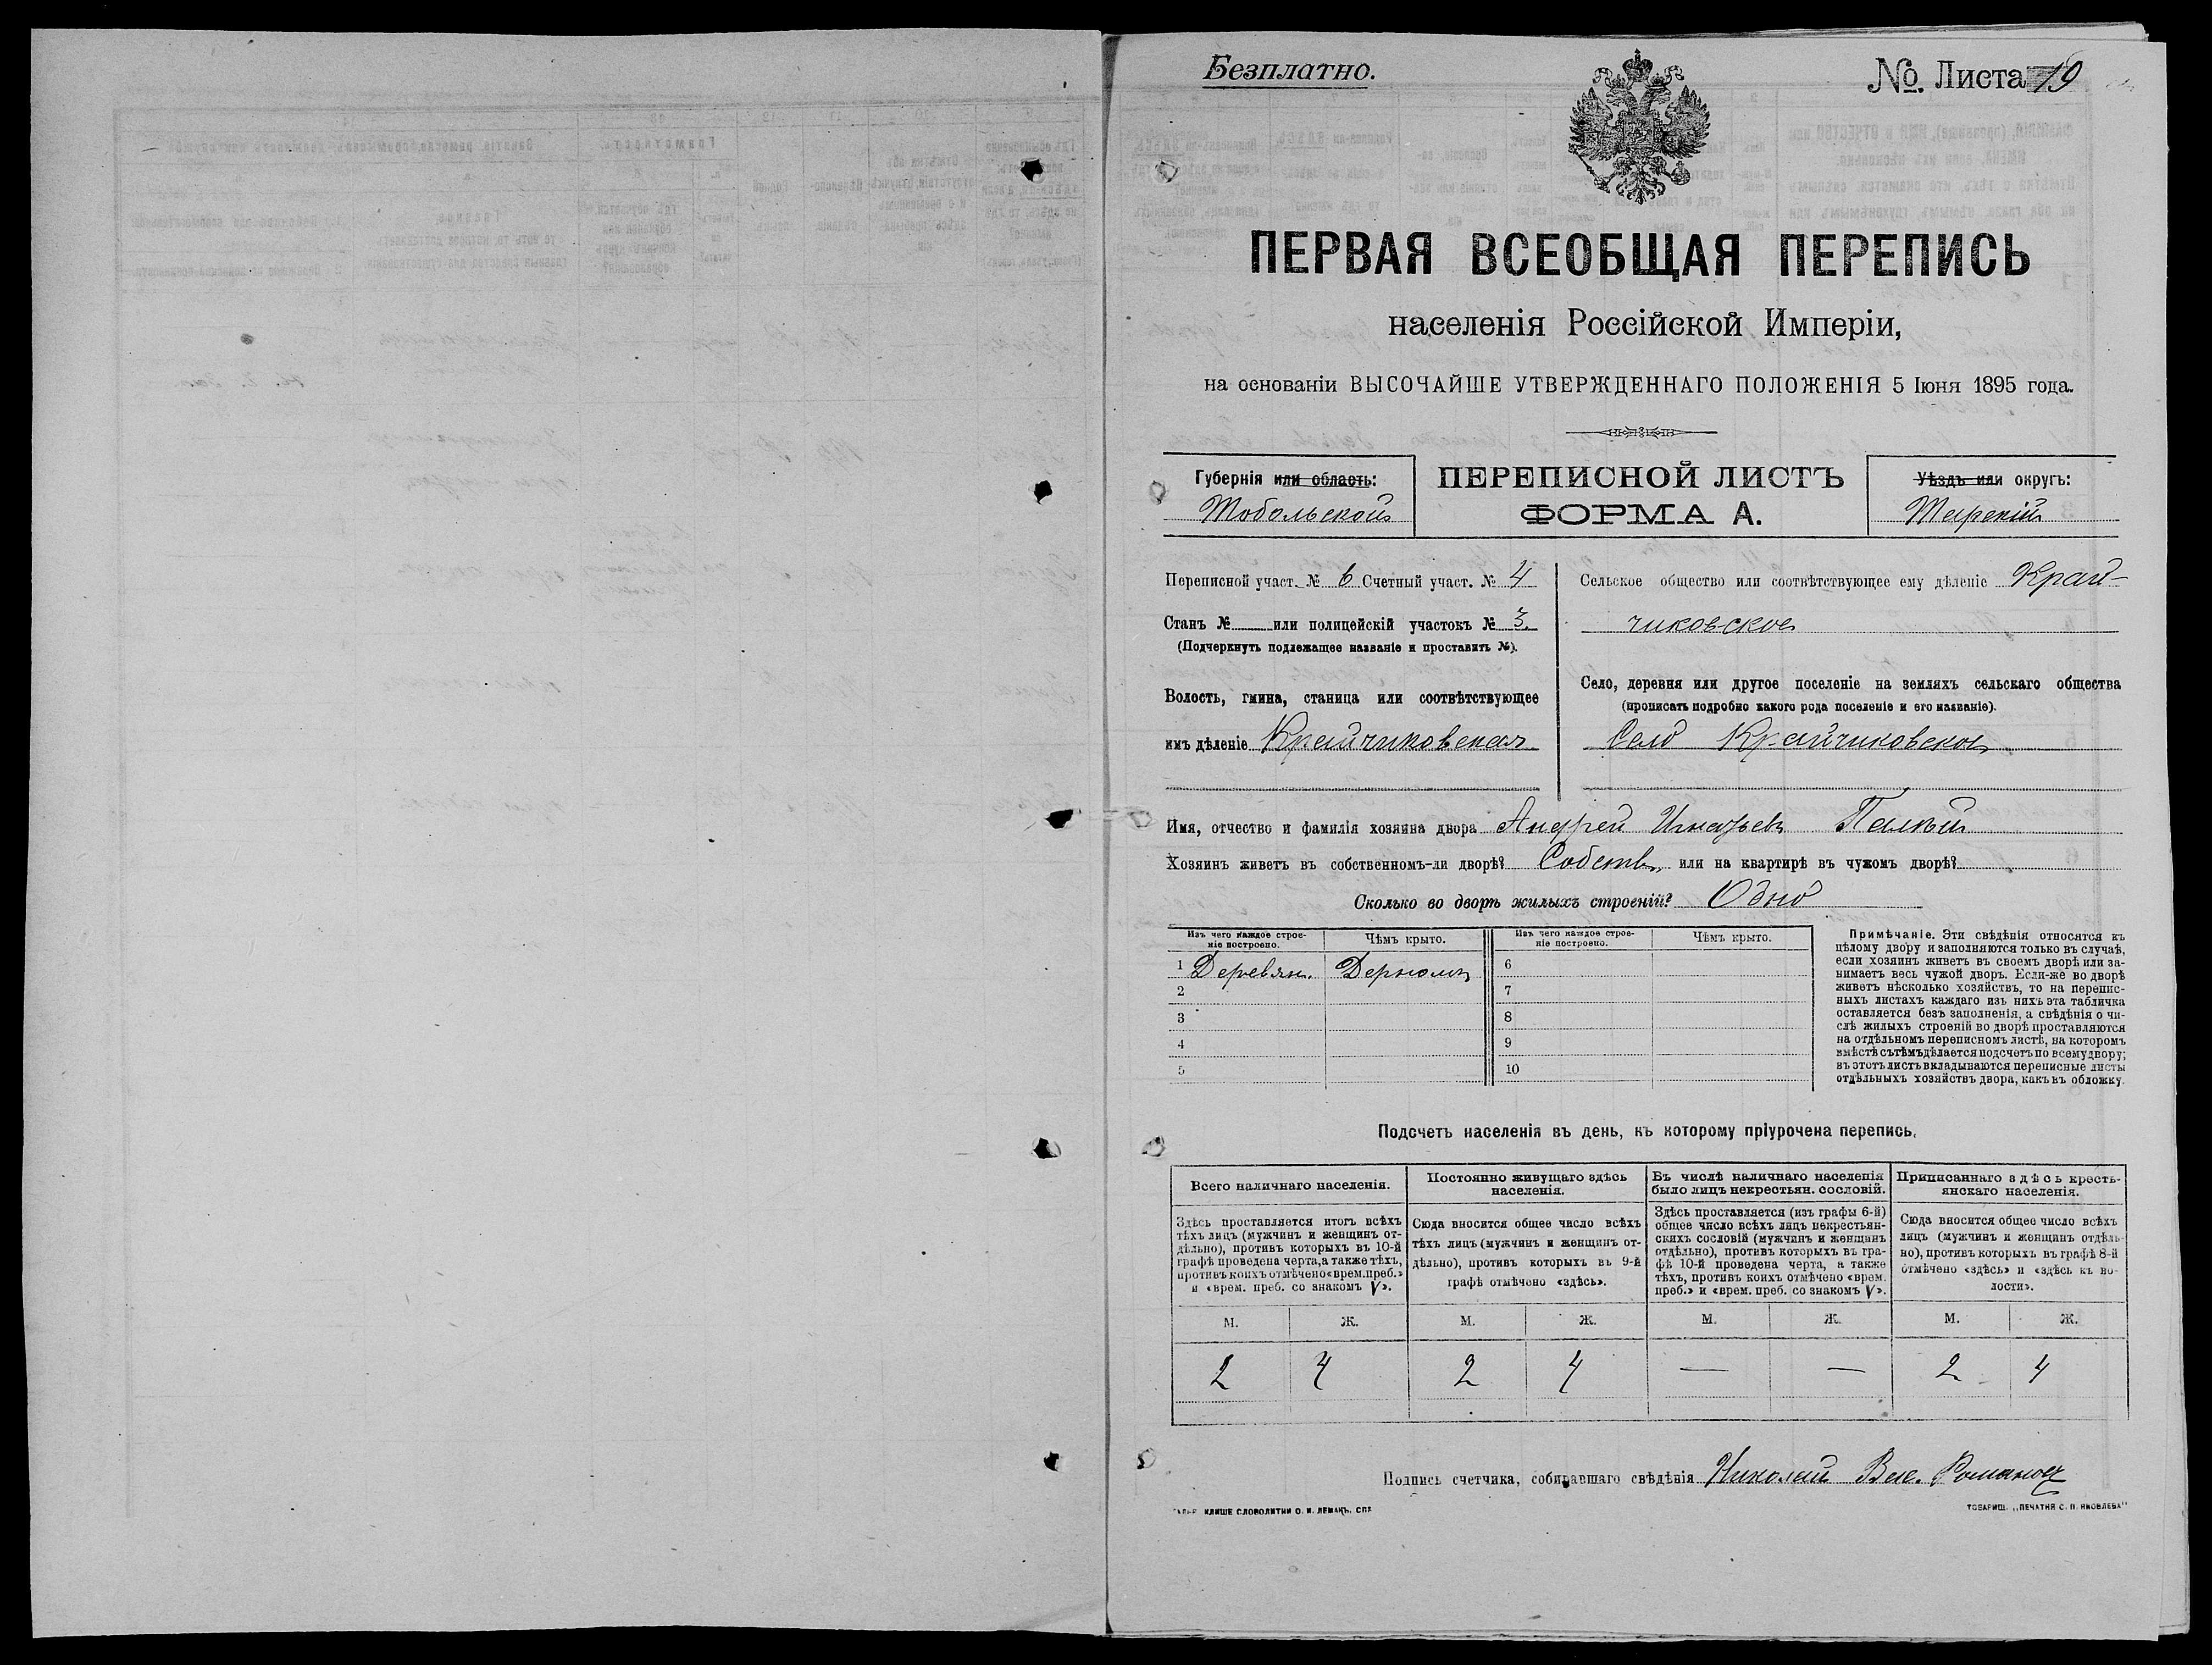 Безплатно.
№ Листа 19
ПЕРВАЯ ВСЕОБЩАЯ ПЕРЕПИСЬ
населенія Россійской Имперіи,
на основаніи ВЫСОЧАЙШЕ УТВЕРЖДЕННАГО ПОЛОЖЕНІЯ 5 Іюня 1895 года.
Губернія или область:
Тобольской
ПЕРЕПИСНОЙ ЛИСТЪ
ФОРМА А.
Уѣздъ или округъ:
Тарскій
Переписной участ. № 6 Счетный участ. № 4
Станъ № или полицейскій участокъ № 3.
(Подчеркнуть подлежащее названіе и проставить №).
Волость, гмина, станица или соотвѣтствующее
имъ дѣленіе Крайчиковская
Сельское общество или соотвѣтствующее ему дѣленіе Край-
чиковское
Село, деревня или другое поселеніе на земляхъ сельскаго общества
(прописать подробно какого рода поселеніе и его названіе).
Село Крайчиковское
Имя, отчество и фамилія хозяина двора Андрей Игнатьевъ
Хозяинъ живетъ въ собственномъ-ли дворѣ? Собств. или на квартирѣ въ чужомъ дворѣ?
Сколько во дворѣ жилыхъ строеній? Одно
Изъ чего каждое строе-
ніе построено.
Чѣмъ крыто.
Изъ чего каждое строе-
ніе построено.
Чѣмъ крыто.
1 Деревян. Дерномъ
2
3
4
5
6
7
8
9
10
Примѣчаніе. Эти свѣдѣнія относятся къ
цѣлому двору и заполняются только въ случаѣ,
если хозяинъ живетъ въ своемъ дворѣ или за-
нимаетъ весь чужой дворъ. Если-же во дворѣ
живетъ нѣсколько хозяйствъ, то на перепис-
ныхъ листахъ каждаго изъ нихъ эта табличка
оставляется безъ заполненія, а свѣдѣнія о чи-
слѣ жилыхъ строеній во дворѣ проставляются
на отдѣльномъ переписномъ листѣ, на которомъ
вмѣстѣ съ тѣмъ дѣлается подсчетъ по всему двору;
въ этотъ листъ вкладываются переписные листы
отдѣльныхъ хозяйствъ двора, какъ въ обложку.
Подсчетъ населенія въ день, къ которому пріурочена перепись.
Всего наличнаго населенія.
Здѣсь проставляется итогъ всѣхъ
тѣхъ лицъ (мужчинъ и женщинъ от-
дѣльно), противъ которыхъ въ 10-й
графѣ проведена черта, а также тѣхъ,
противъ коихъ отмѣчено «врем. преб.»
и «врем. преб. со знакомъ V».
Постоянно живущаго здѣсь
населенія.
Сюда вносится общее число всѣхъ
тѣхъ лицъ (мужчинъ и женщинъ от-
дѣльно), противъ которыхъ въ 9-й
графѣ отмѣчено «здѣсь».
Въ числѣ наличнаго населенія
было лицъ некрестьян. сословій.
Здѣсь проставляется (изъ графы 6-й)
общее число всѣхъ лицъ некрестьян-
скихъ сословій (мужчинъ и женщинъ
отдѣльно), противъ которыхъ въ гра-
фѣ 10-й проведена черта, а также
тѣхъ, противъ коихъ отмѣчено «врем.
преб.» и «врем. преб. со знакомъ V».
Приписаннаго здѣсь кресть-
янскаго населенія.
Сюда вносится общее число всѣхъ
лицъ (мужчинъ и женщинъ отдѣль-
но), противъ которыхъ въ графѣ 8-й
отмѣчено «здѣсь» и «здѣсь къ во-
лости».
М. Ж. М. Ж. М. Ж. М. Ж.
2 4 2 4 — — 2 4
Подпись счетчика, собиравшаго свѣдѣнія Николай Вас.
КЛИШЕ СЛОВОЛИТНИ О. И. ЛЕМАНЪ. СПБ
ТОВАРИЩ. „ПЕЧАТНЯ С. П. ЯКОВЛЕВА"